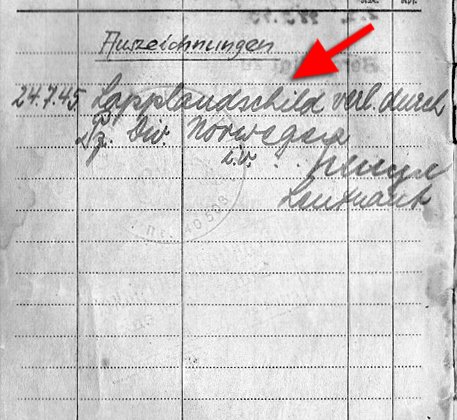 Auszeichnungen
24.7.45 Lapplandschild verl. durch
Pz. Div. Norwegen
i.V.
Leutnant